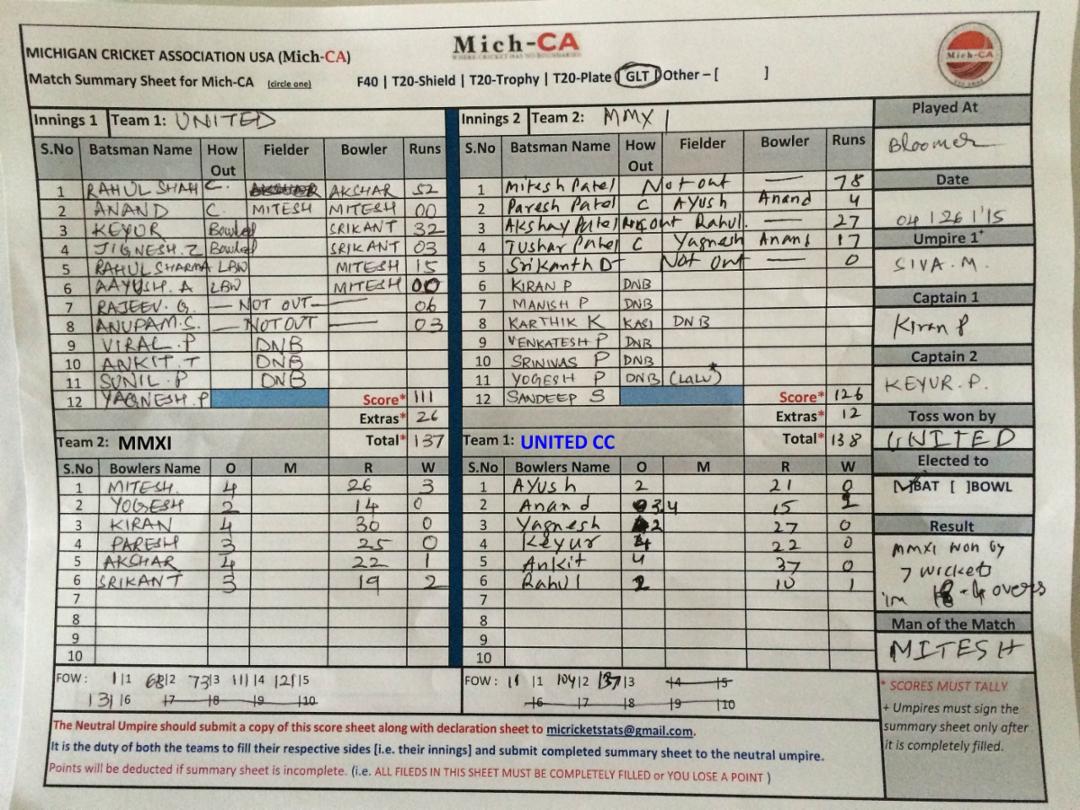 MICHIGAN CRICKET ASSOCIATION USA (Mich-CA)
Mich-CA
Mich-CA
Match Summary Sheet for Mich-CA (circle one) F40 | T20-Shield | T20-Trophy | T20-Plate | GLT | Other – [ ]
Innings 1 Team 1: UNITED
S.No Batsman Name How Out Fielder Bowler Runs
1 RAHUL SHAH C. AKSHAR 52
2 ANAND C. MITESH MITESH 00
3 KEYUR Bowled SRIKANT 32
4 JIGNESH.Z Bowled SRIKANT 03
5 RAHUL SHARMA LBW MITESH 15
6 AAYUSH.A LBW MITESH 00
7 RAJEEV.G. — NOT OUT — 06
8 ANUPAM.S. — NOT OUT — 03
9 VIRAL.P DNB
10 ANKIT.T DNB
11 SUNIL.P DNB
12 YAGNESH.P Score* 111
Extras* 26
Team 2: MMXI Total* 137
S.No Bowlers Name O M R W
1 MITESH. 4 26 3
2 YOGESH 2 14 0
3 KIRAN 4 30 0
4 PARESH 3 25 0
5 AKSHAR 4 22 1
6 SRIKANT 3 19 2
7
8
9
10
FOW: 1|1 68|2 73|3 111|4 121|5
131|6 |7 |8 |9 |10
Innings 2 Team 2: MMXI
S.No Batsman Name How Out Fielder Bowler Runs
1 Mitesh Patel Not out — 78
2 Paresh Patel C Ayush Anand 4
3 Akshay Patel out Rahul. — 27
4 Tushar Patel C Yagnesh Anand 17
5 Srikanth D Not out — 0
6 KIRAN P DNB
7 MANISH P DNB
8 KARTHIK K KASI DNB
9 VENKATESH P DNB
10 SRINIVAS P DNB
11 YOGESH P DNB (LALU)*
12 SANDEEP S Score* 126
Extras* 12
Team 1: UNITED CC Total* 138
S.No Bowlers Name O M R W
1 Ayush 2 21 0
2 Anand 3.4 15 2
3 Yagnesh 2 27 0
4 Keyur 4 22 0
5 Ankit 4 37 0
6 Rahul 2 10 1
7
8
9
10
FOW: 11 |1 104|2 137|3 |4 |5
|6 |7 |8 |9 |10
Played At
Bloomer
Date
04|26|'15
Umpire 1+
SIVA.M.
Captain 1
Kiran P
Captain 2
KEYUR.P.
Toss won by
UNITED
Elected to
BAT [ ]BOWL
Result
MMXI won by
7 wickets
in 18.4 overs
Man of the Match
MITESH
* SCORES MUST TALLY
+ Umpires must sign the
summary sheet only after
it is completely filled.
The Neutral Umpire should submit a copy of this score sheet along with declaration sheet to micricketstats@gmail.com.
It is the duty of both the teams to fill their respective sides [i.e. their innings] and submit completed summary sheet to the neutral umpire.
Points will be deducted if summary sheet is incomplete. (i.e. ALL FILEDS IN THIS SHEET MUST BE COMPLETELY FILLED or YOU LOSE A POINT )